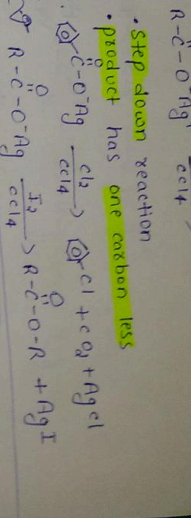 R-C-O⁻Ag CCl4
O
• step down reaction
• product has one carbon less
O
C-O⁻Ag Cl2/CCl4 > Cl + CO2 + AgCl
O O
R-C-O⁻Ag I2/CCl4 > R-C-O-R + AgI